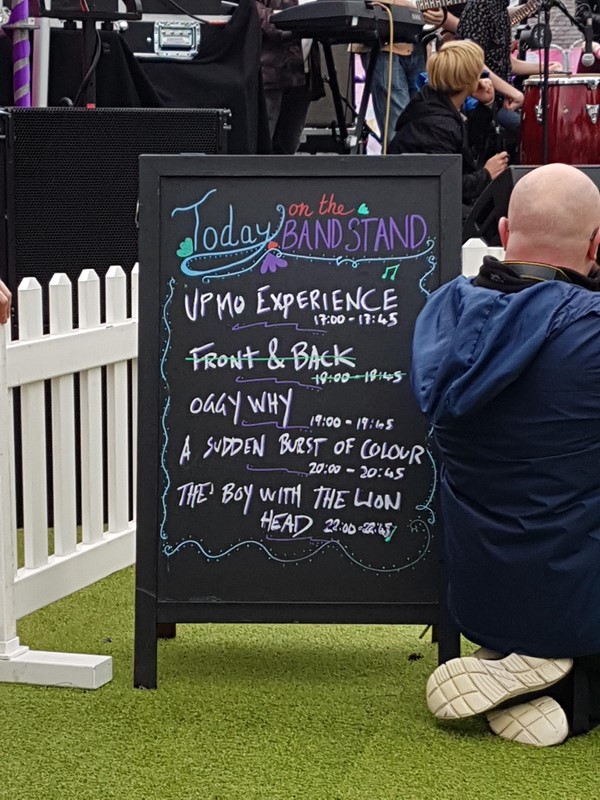 Today on the
BAND STAND
UPMO EXPERIENCE
17:00 - 17:45
FRONT & BACK
18:00 - 18:45
OGGY WHY
19:00 - 19:45
A SUDDEN BURST OF COLOUR
20:00 - 20:45
THE BOY WITH THE LION
HEAD 22:00 - 22:45